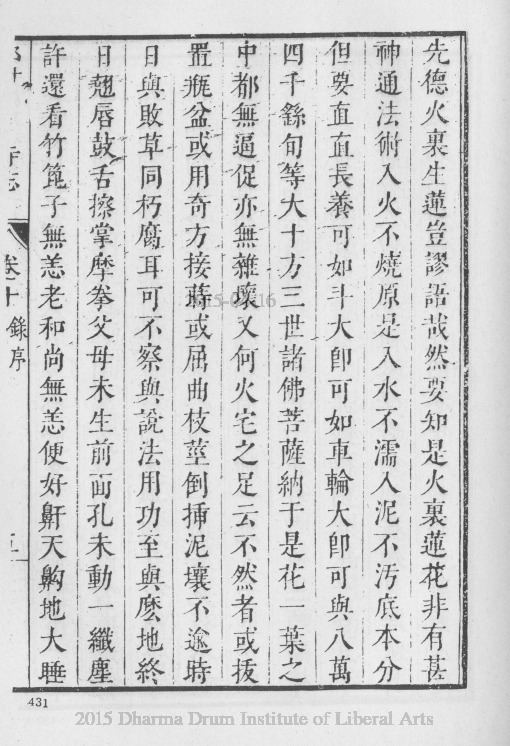 先德火裏生蓮豈謬語哉然要知是火裏蓮花非有甚
神通法術入火不燒原是入水不濡入泥不汚底本分
但要直直長養可如斗大卽可如車輪大卽可與八萬
四千餘旬等大十方三世諸佛菩薩納于是花一葉之
中都無逼促亦無雜壞又何火宅之足云不然者或拔
置瓶盆或用奇方接蒔或屈曲枝莖倒揷泥壤不逾時
日與敗草同朽腐耳可不察與說法用功至與麼地終
日翹唇鼓舌擦掌摩拳父母未生前面孔未動一纖塵
許還看竹篦子無恙老和尚無恙便好鼾天齁地大睡
寺志
卷十 錄序
431
2015 Dharma Drum Institute of Liberal Arts